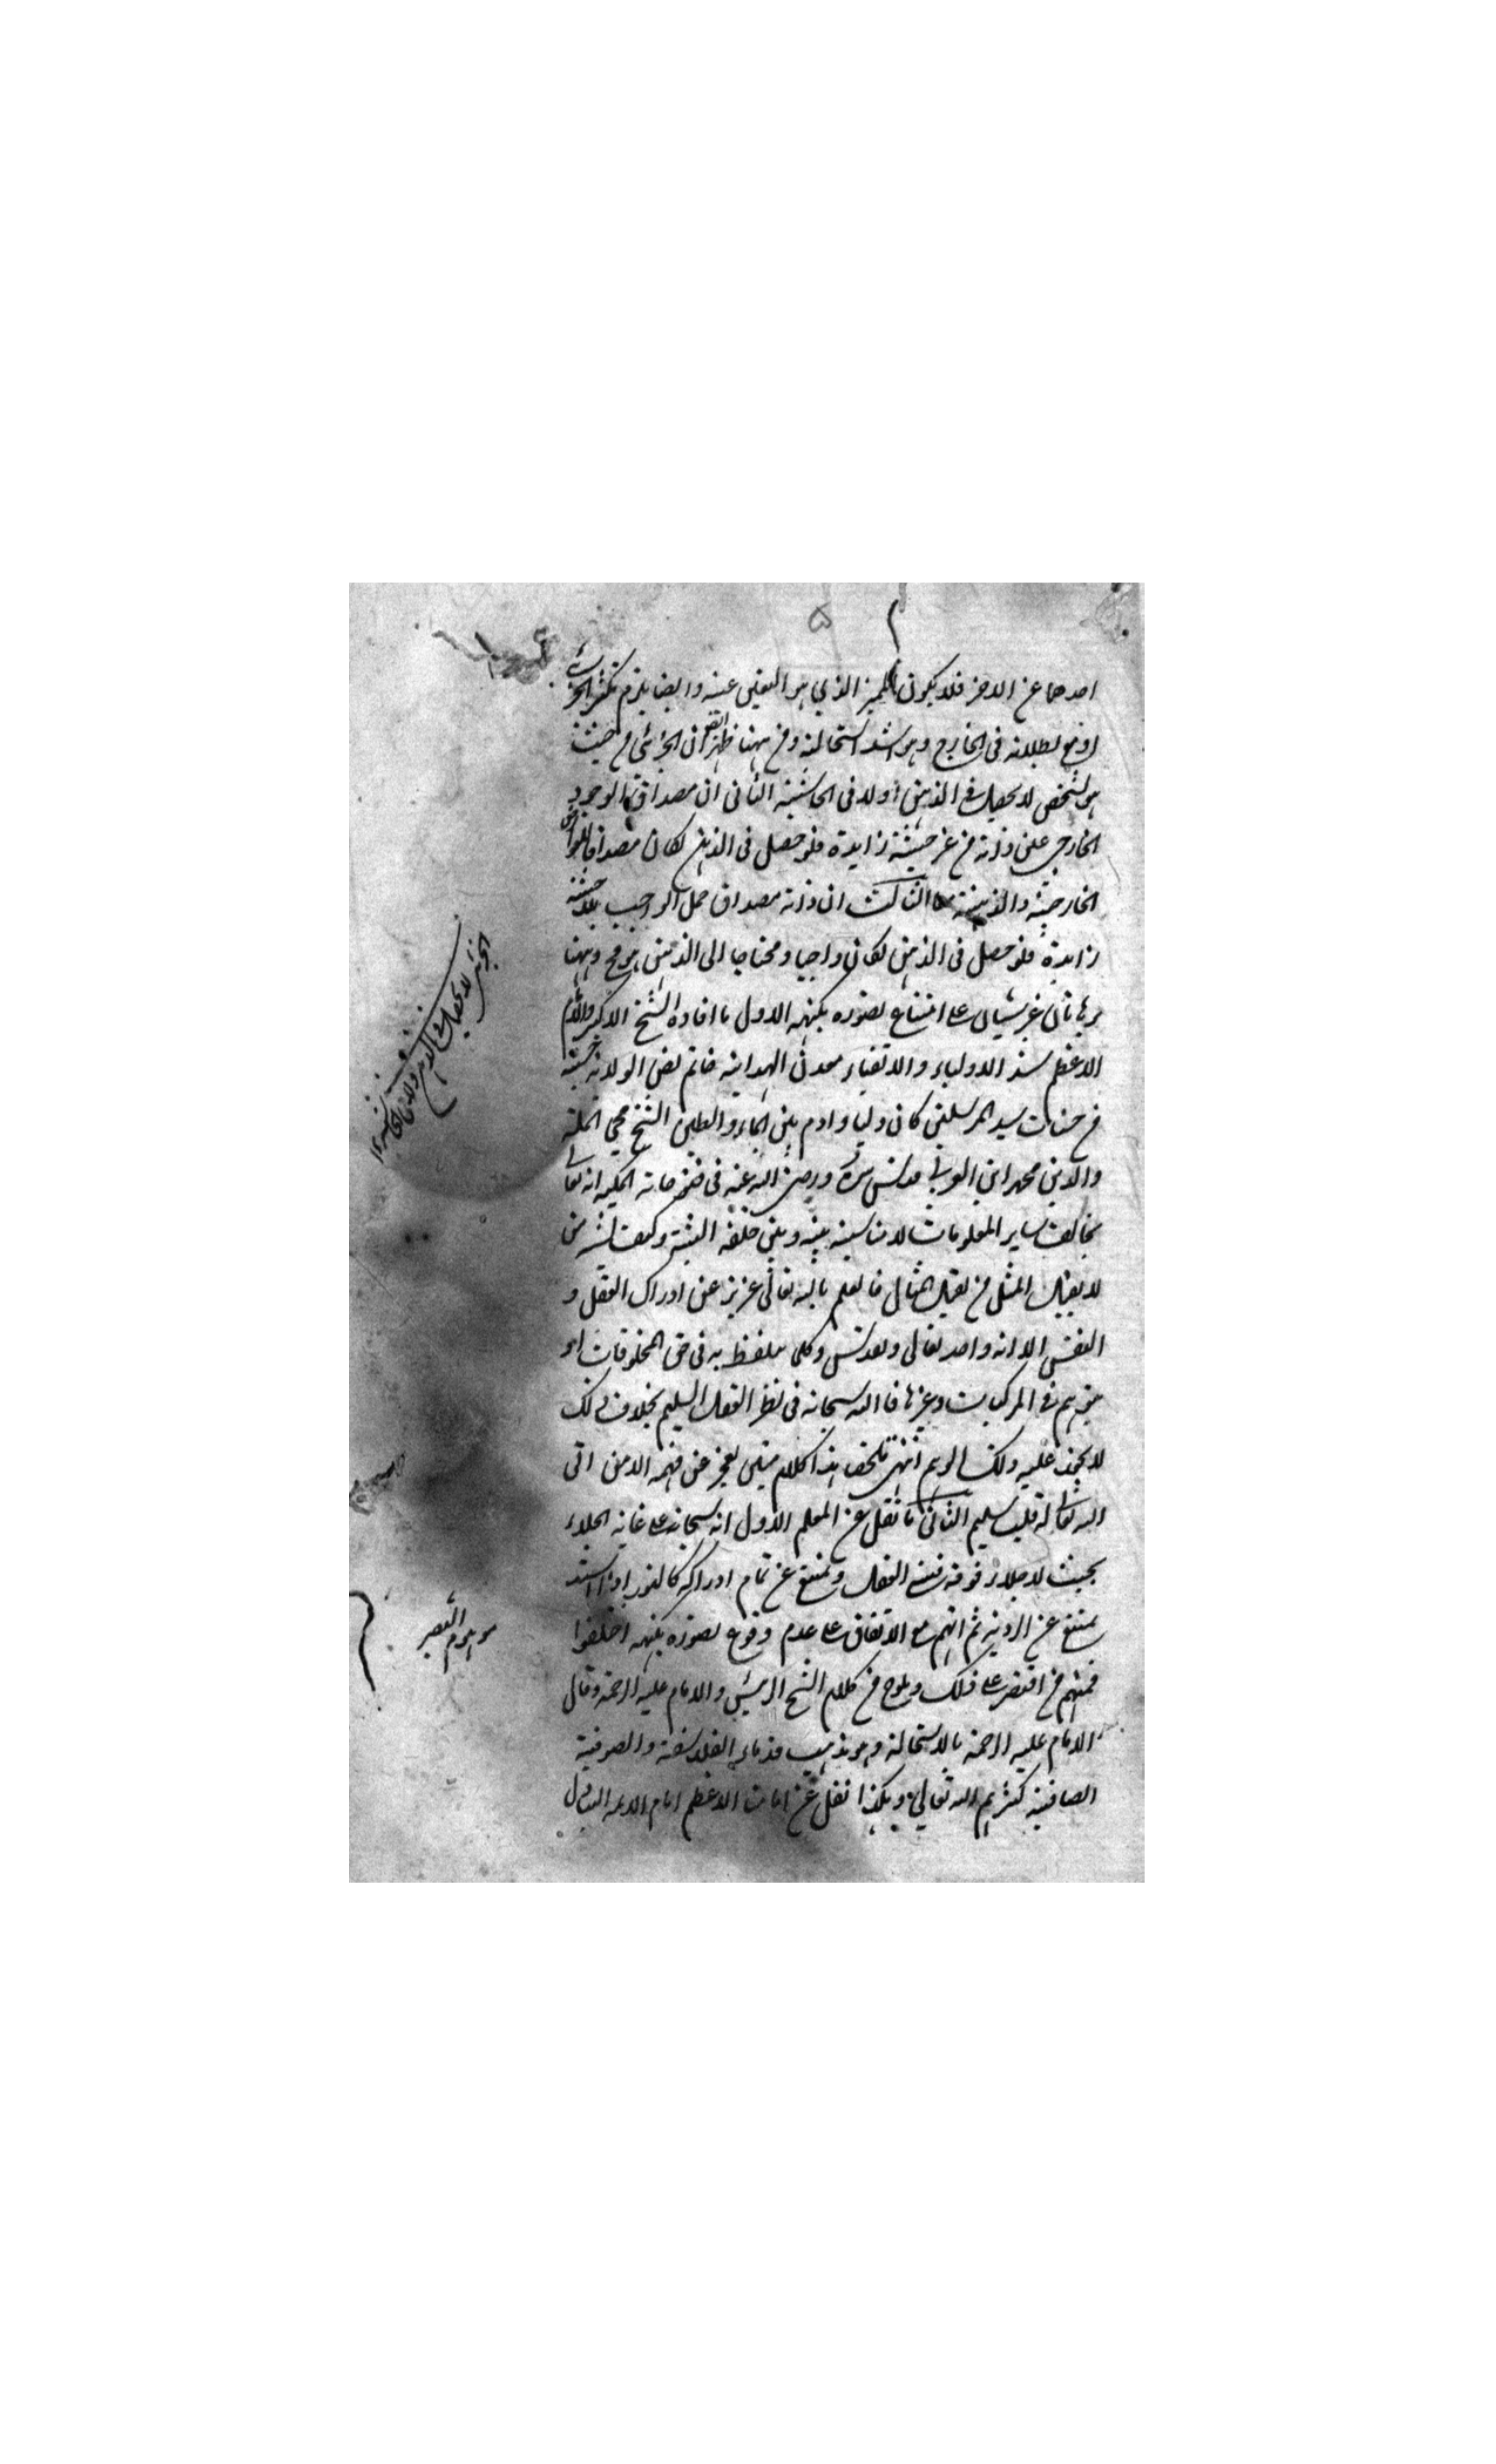 ۵
احدهما عن الاخر فلا يكون المميز الذي هو التعين عينه وايضا يلزم تكثر الجزئي
او هو بطلانه في الخارج وهو اشد استحالة ومن ههنا ظهر ان الجزئي من حيث
هو شخص لا يحصل في الذهن اولا في الحاشية الثاني ان مصداق الوجود
الخارجي عين ذاته من غير حيثية زايدة فلو حصل في الذهن لكان مصداقا للوجود
الخارجية والذهنية الثالث ان ذاته مصداق حمل الواجب بلا حيثية
زايدة فلو حصل في الذهن لكان واجبا ومحتاجا الى الذهن هو مح وههنا
برهانان غير على امتناع تصوره بكنهه الاول ما افاده الشيخ الاكبر والامام
الاعظم سند الاولياء والاتقياء معدن الهداية خاتم فص الولاية حسنة
من حسنات سيد المرسلين كان وليا وادم بين الماء والطين الشيخ محي الملة
والدين محمد ابن العربي قدس سره ورضي الله عنه في فتوحاته المكية انه تعالى
يخالف ساير المعلومات لا مناسبة بينه وبين خلقه البتة وكيف يشبه من
لا يقبل المثل من يقبل المثال فالعلم بالله تعالى عزيز عن ادراك العقل و
النفس الا انه واحد تعالى وتقدس وكل ما يلفظ به في حق المخلوقات او
يتوهم في المركبات وغيرها فالله سبحانه في نظر العقل السليم بخلاف ذلك
لا يجوز عليه ذلك الوهم انتهى تلخيص هذا كلام متين يعجز عن فهمه الا من اتى
الله تعالى له قلب سليم الثاني ما نقل عن المعلم الاول انه سبحانه على غاية الجلاء
بحيث لا جلاء فوقه فيتنه العقل ويمتنع عن تمام ادراكه كالنور اذا اشتد
يمتنع عن الروية ثم انهم مع الاتفاق على عدم وقوع تصوره بكنهه اختلفوا
فمنهم من اقتصر على ذلك ويلوح من كلام الشيخ الرئيس والامام عليه الرحمة وقال
الامام عليه الرحمة بالاستحالة وهو مذهب قدماء الفلاسفة والصوفية
الصافية كثرهم الله تعالى وهكذا نقل عن امامنا الاعظم امام الائمة
الجزئي لا يحصل في الذهن